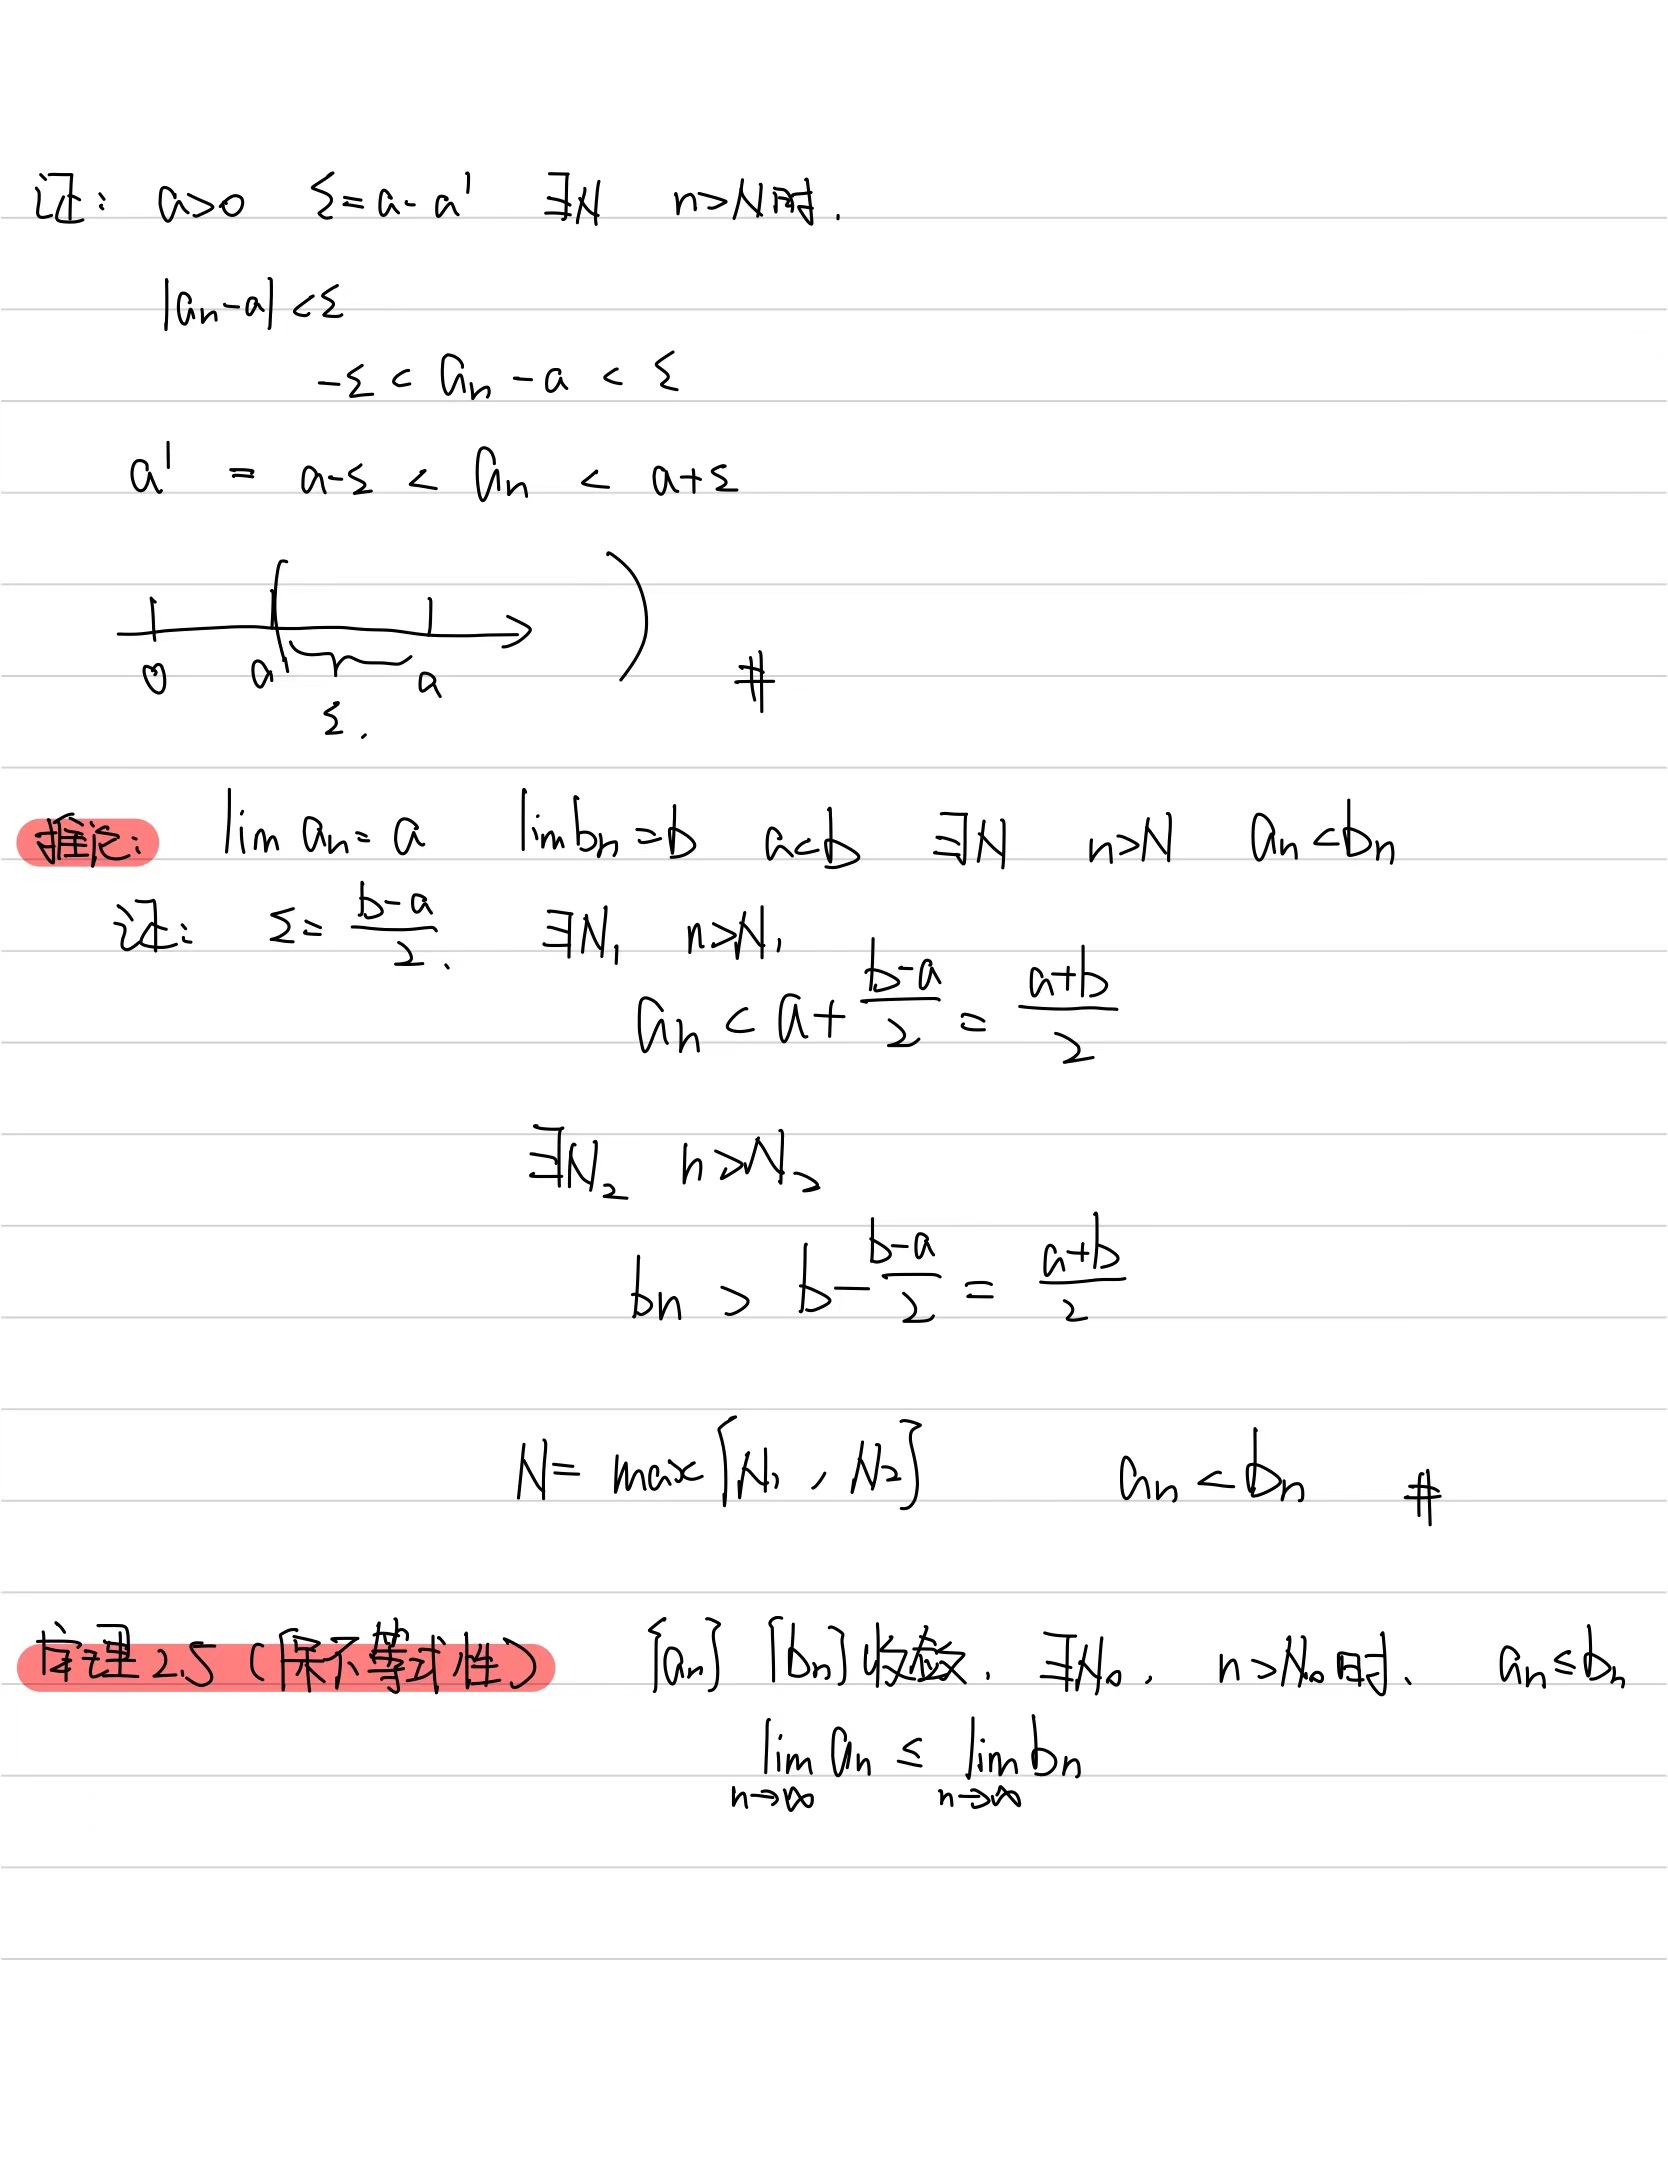 证: a>0 ε=a-a' ∃N n>N时.
|an-a|<ε
-ε < an-a < ε
a' = a-ε < an < a+ε
0 a' a
ε.
#
推论: lim an=a lim bn=b a<b ∃N n>N an<bn
证: ε=(b-a)/2. ∃N₁ n>N₁
an < a+(b-a)/2 = (a+b)/2
∃N₂ n>N₂
bn > b-(b-a)/2 = (a+b)/2
N= max{N₁, N₂} an<bn #
定理2.5(保不等式性) {an} {bn}收敛. ∃N₀. n>N₀时. an≤bn
lim an ≤ lim bn
n→∞ n→∞